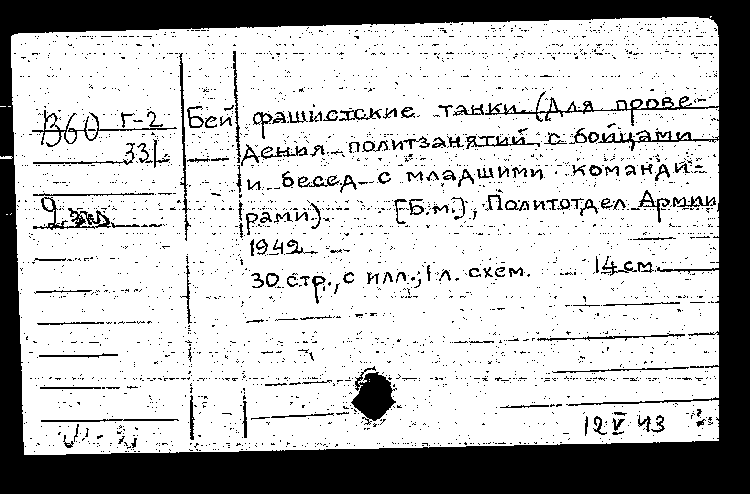 В60 Г-2
33
2 экз.
Бей фашистские танки. (Для прове-
дения политзанятий с бойцами
и бесед с младшими команди-
рами). [Б.м.], Политотдел Армии,
1942.
30 стр., с илл.; 1 л. схем. 14 см.
12 V 43